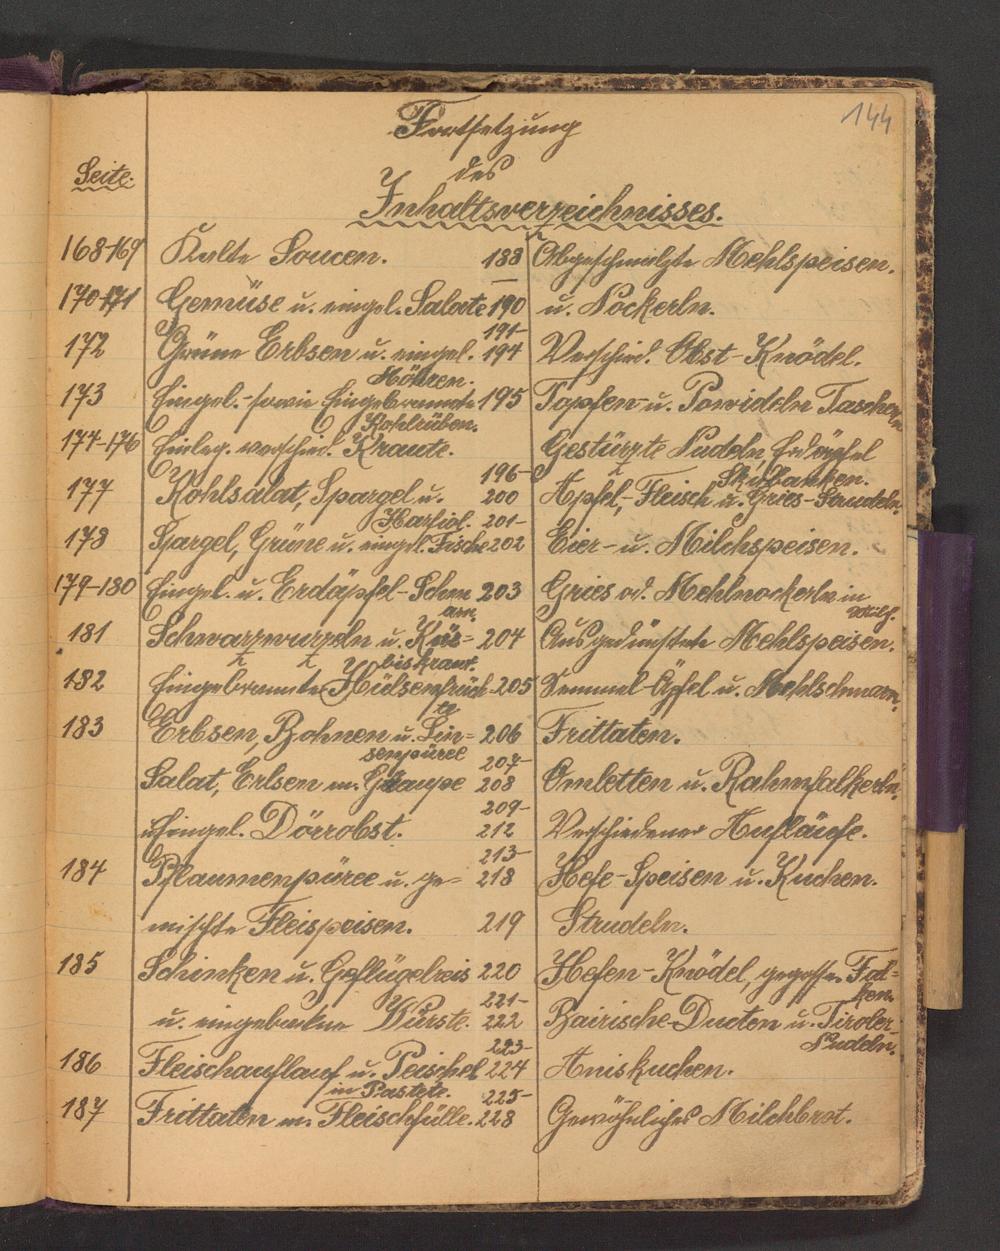 144
Fortsetzung
des
Seite.
Inhaltsverzeichnisses.
168-169 Kalte Soucen.
170-171 Gemüse u. eingel. Salate
172 Grüne Erbsen u. eingel.
Möhren.
173 Eingel.- sowie Eingebrannte
Kohlrüben.
174-176 Einleg. verschied. Kraute.
177 Kohlsalat, Spargel u.
Karfiol.
178 Spargel, Grüne u. eingel. Fische
179-180 Eingel. u. Erdäpfel-Schm
arn.
181 Schwarzwurzeln u. Küs=
biskraut.
182 Eingebrannte Hülsenfrüch-
te
183 Erbsen, Bohnen u. Lin=
senpüree
Salat, Erbsen m. Graupe
u Eingel. Dörrobst.
184 Pflaumenpüree u. ge-
mischte Fleispeisen.
185 Schinken u. Geflügelreis
u. eingebackne Würste.
186 Fleischauflauf u. Peischel
in Pastete.
187 Frittaten m. Fleischfülle.
188 Abgeschmalzte Mehlspeisen.
–
190 u. Nockerln.
191-
194 Verschied. Obst-Knödel.
195 Topfen- u. Powideln Taschen
Gestürzte Nudeln, Erdäpfel
Skubanken.
196-
200 Apfel-, Fleisch u. Gries-Strudeln.
201-
202 Eier- u. Milchspeisen.
203 Gries od. Mehlnockerln in
Milch.
204 Ausgedünstete Mehlspeisen.
205 Semmel-Äpfel u. Mehlschmarn.
206 Frittaten.
207-
208 Omletten u. Rahmdalkerln.
209-
212 Verschiedener Aufläufe.
213-
218 Hefe-Speisen u. Kuchen.
219 Strudeln.
220 Hefen-Knödel, gegossen.
221-
222 Bairische-Ducten u. Tiroler-
Nudeln.
223-
224 Aniskuchen.
225-
228 Gewöhnliches Milchbrot.